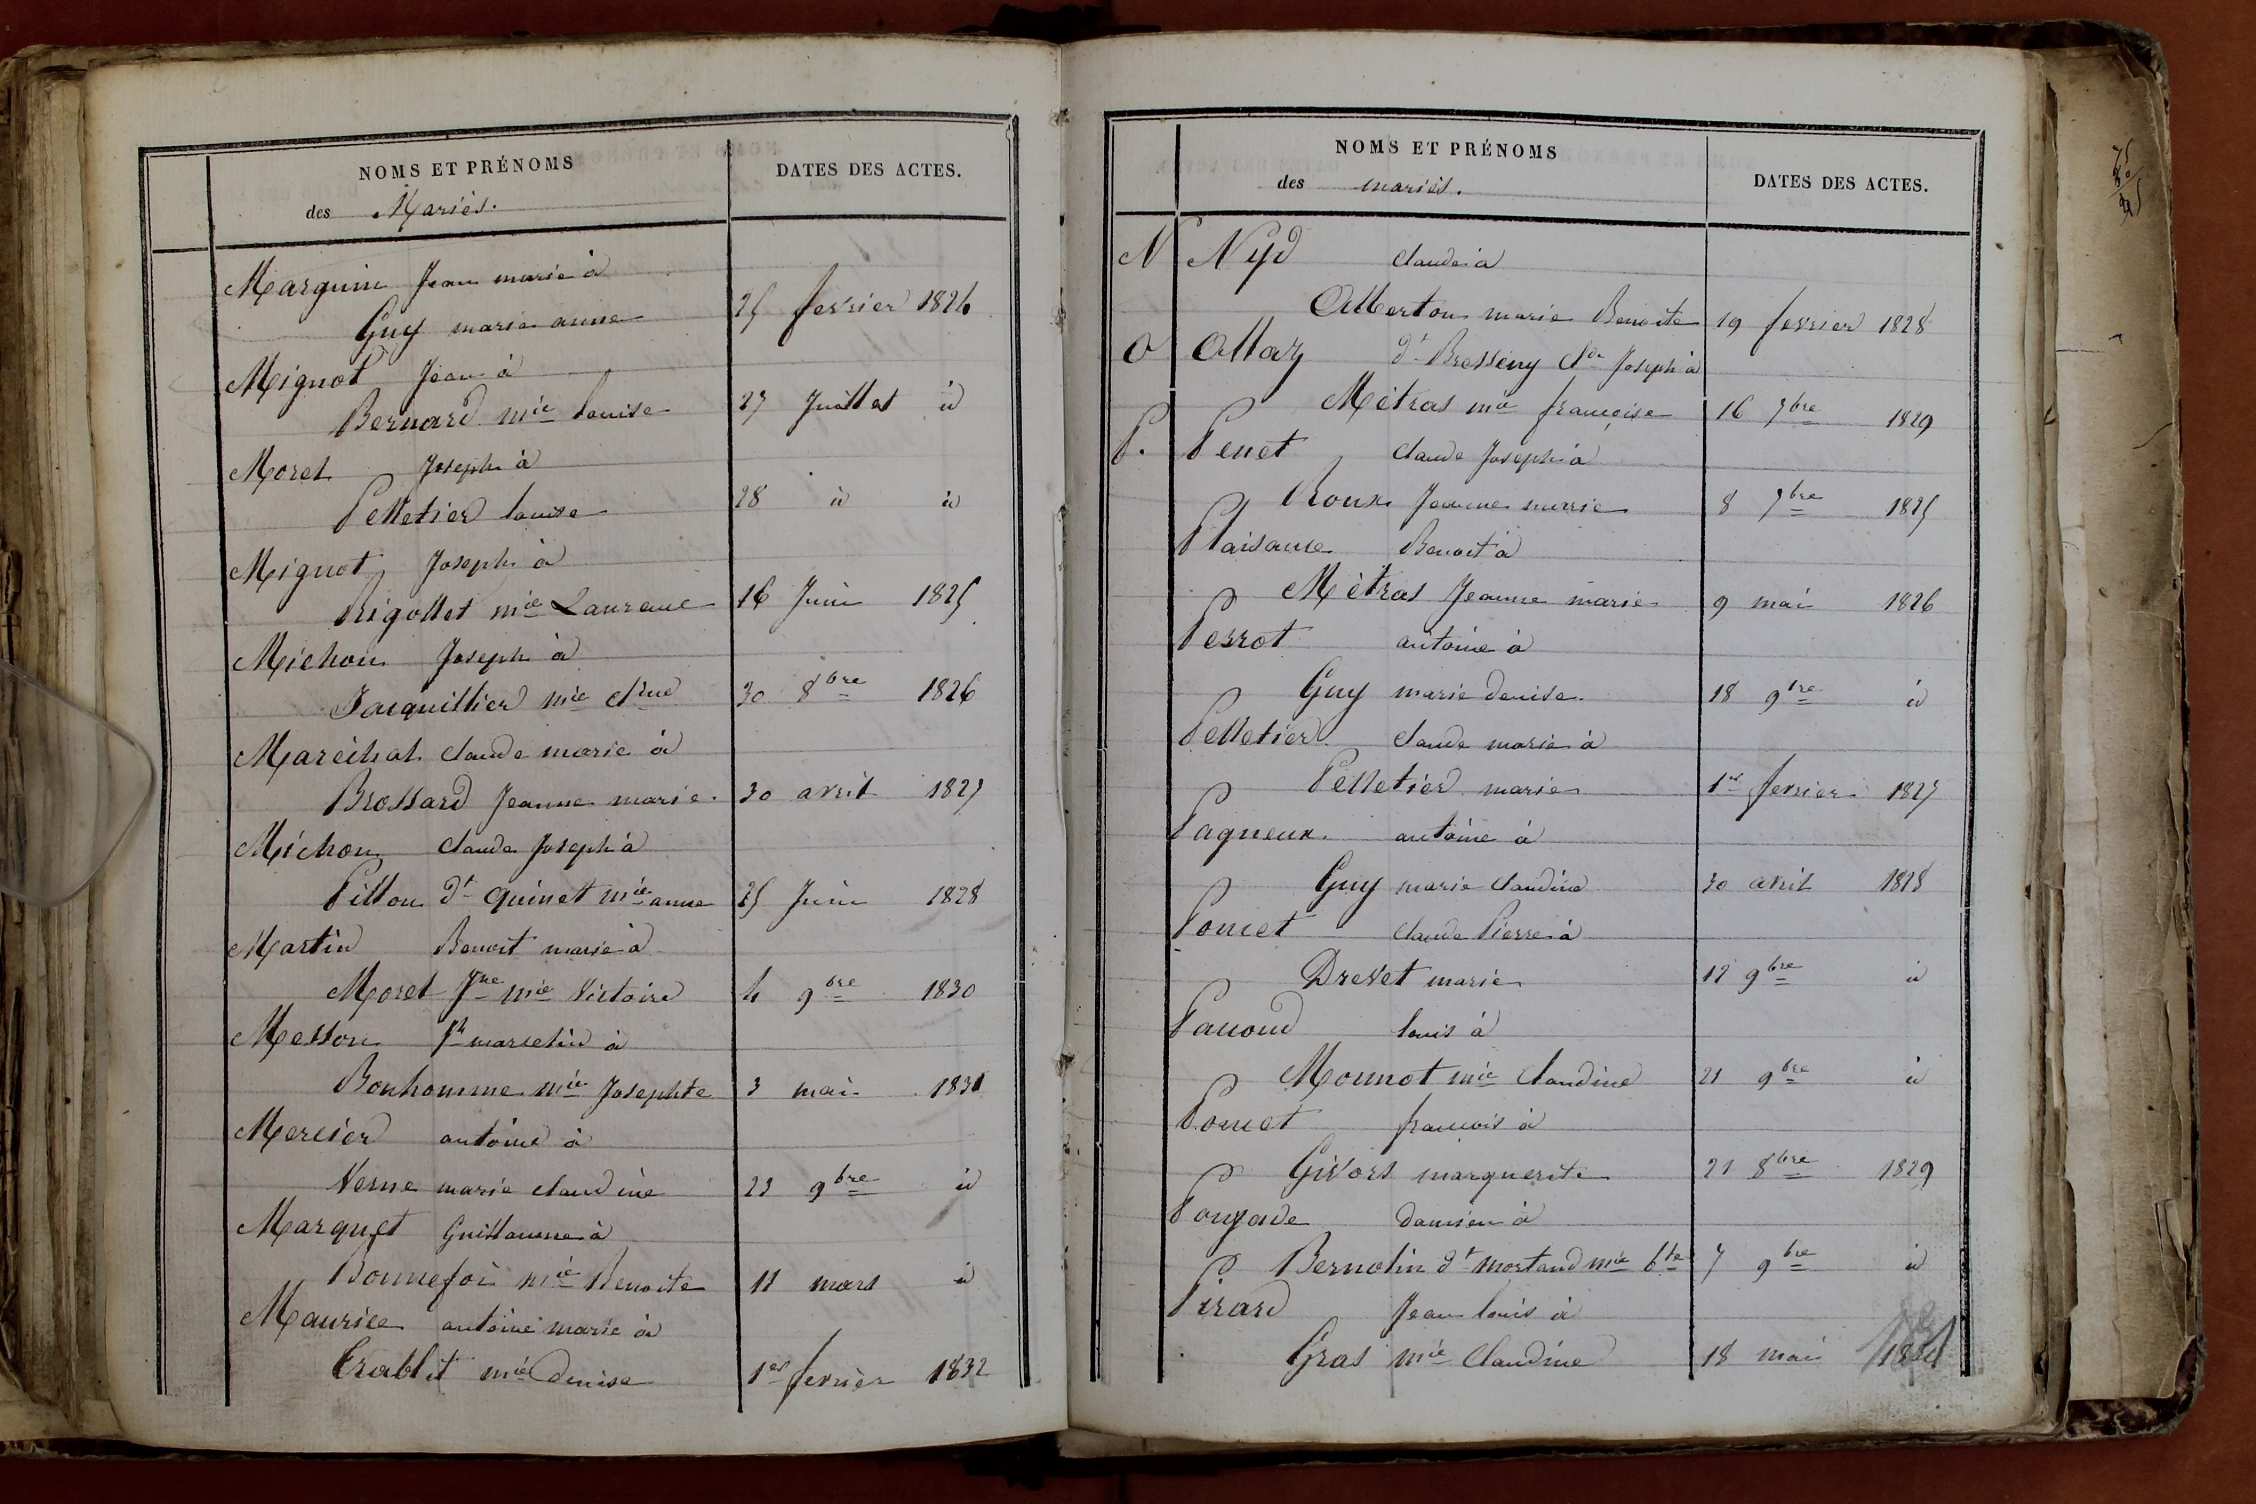 NOMS ET PRÉNOMS
des Mariés.
DATES DES ACTES.
Marguin Jean marie à
Guy marie anne 25 fevrier 1824
Mignot Jean à
Bernard mie louise 27 Juillet id
Morel Joseph à
Pelletier louise 28 id id
Mignot Joseph à
Rigollet mie Laurence 16 Juin 1825
Michon Joseph à
Jacquillier mie Cldine 30 8bre 1826
Maréchal claude marie à
Brossard Jeanne marie 30 avril 1827
Michon claude Joseph à
Pillon dt quinet mie anne 25 Juin 1828
Martin Benoit marie à
Morel Jne mie Victoire 4 9bre 1830
Messon marcelin à
Bonhomme mie Josephte 3 mai 1831
Mercier antoine à
Verne marie claudine 22 9bre id
Marquet Guillaume à
Bonnefoi mie Benoite 11 mars id
Maurice antoine marie à
Crablit mie denise 1er fevrier 1832
NOMS ET PRÉNOMS
des mariés.
DATES DES ACTES.
N Nyd claude à
Alberton marie Benoite 19 fevrier 1828
O Ollaz dt Bresseny Cde Joseph à
Mètras mie françoise 16 7bre 1829
P. Penet claude Joseph à
Roux Jeanne marie 8 7bre 1825
Plaisance Benoit à
Mètras Jeanne marie 9 mai 1826
Perrot antoine à
Guy marie denise 18 9bre id
Pelletier claude marie à
Pelletier marie 1er fevrier 1827
Pagneux antoine à
Guy marie claudine 30 avril 1828
Poncet claude Pierre à
Drevet marie 12 9bre id
Pacoud louis à
Monnot mie claudine 21 9bre id
Poncet francois à
Givors marguerite 21 8bre 1829
Pouyade damien à
Bernolin dt mortaud mie bte 7 9bre id
Pirard Jean louis à
Gras mie Claudine 18 mai 1831